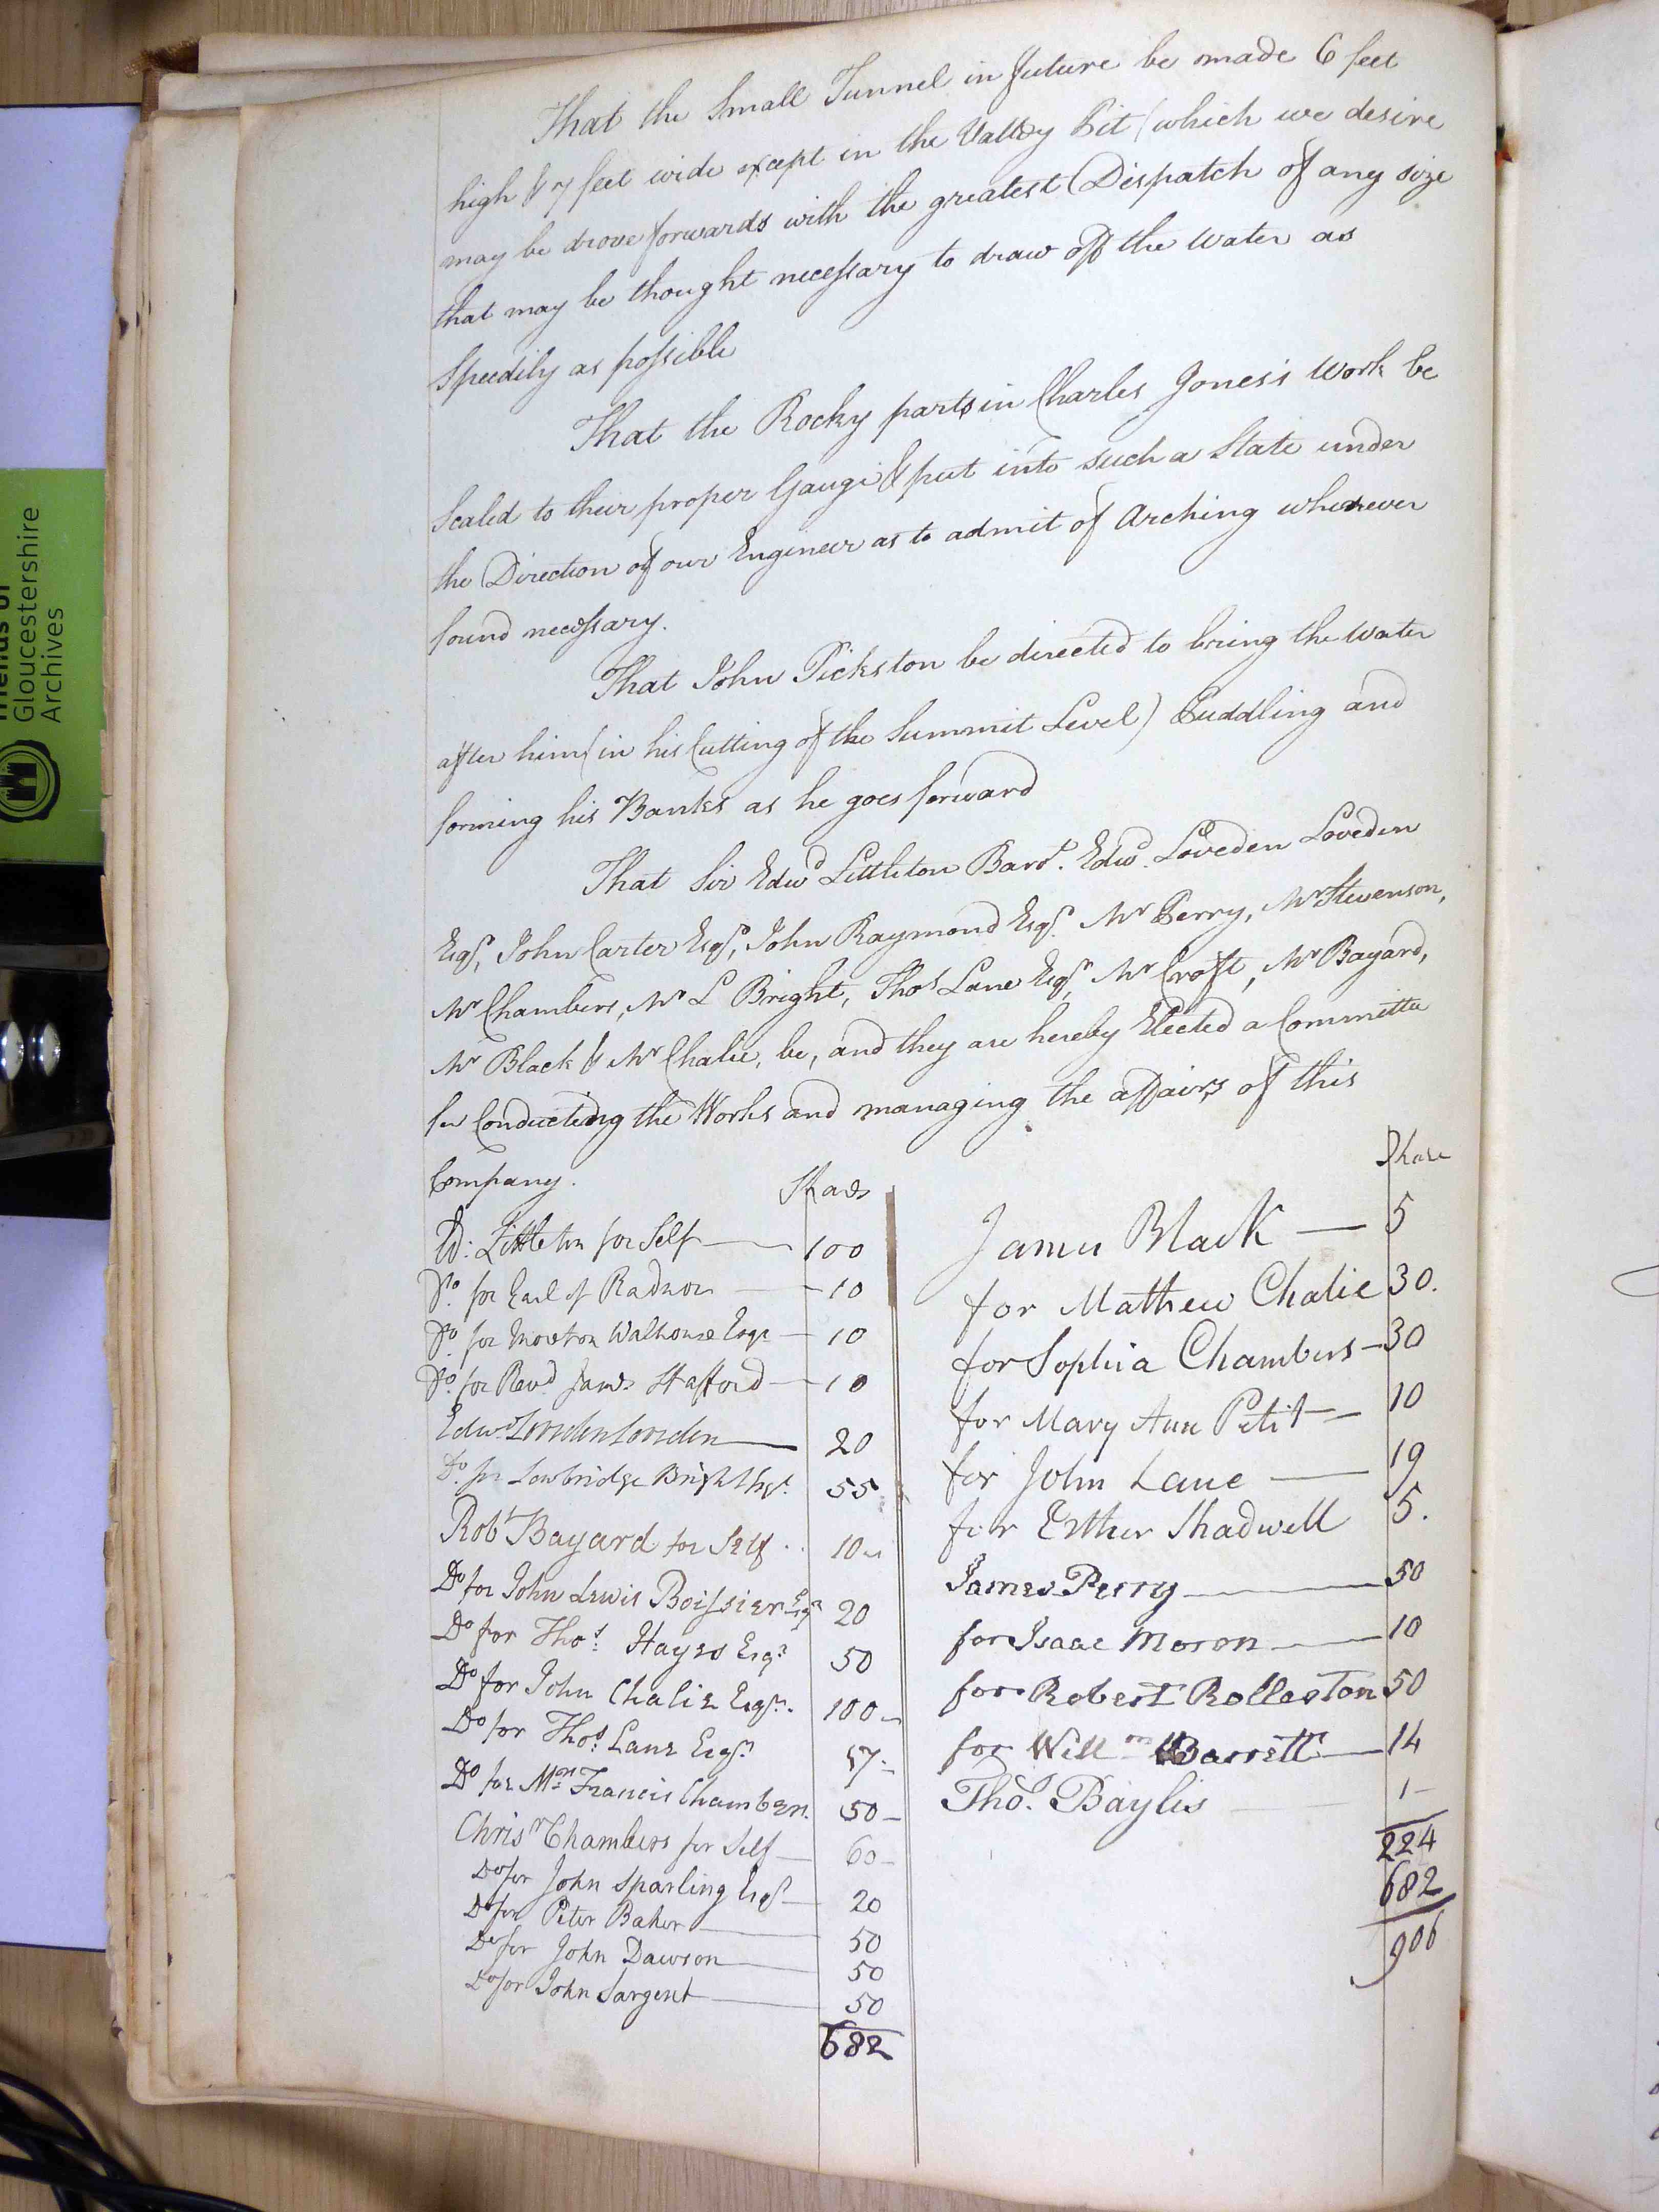 That the Small Tunnel in future be made 6 feet
high & 7 feet wide except in the Valley Pit (which we desire
may be drove forwards with the greatest Dispatch of any size
that may be thought necessary to draw off the Water as
Speedily as possible
That the Rocky parts in Charles Jones's Work be
Scaled to their proper Gauge & put into such a State under
the Direction of our Engineer as to admit of Arching wherever
found necessary.
That John Pickston be directed to bring the Water
after him (in his Cutting of the Summit Level) Puddling and
forming his Banks as he goes forward
That Sir Edwd Littleton Bart. Edwd. Loveden Loveden
Esqr, John Carter Esqr, John Raymond Esqr. Mr Perry, Mr Stevenson,
Mr Chambers, Mr L Bright, Thos Lane Esqr, Mr Croft, Mr Bayard,
Mr Black & Mr Chalie, be, and they are hereby Elected a Committee
for Conducting the Works and managing the affairs of this
Company.
Shares
Ed: Littleton for Self 100
Do. for Earl of Radnor 10
Do. for Moreton Walhouse Esqr 10
Do. for Revd James Stafford 10
Edwd Loveden Loveden 20
Do. for Lowbridge Bright Esqr. 55
Robt Bayard for Self 10
Do for John Lewis Boissier Esqr 20
Do for Thos. Hayes Esqr 50
Do for John Chalie Esqr. 100
Do for Thos. Lane Esqr. 17
Do for Mrs Francis Chambers. 50
Chrisr Chambers for Self 60
Do for John Sparling Esqr 20
Do for Peter Baker 50
Do for John Dawson 50
Do for John Sargent 50
682
Share
James Black 5
for Mathew Chalie 30.
for Sophia Chambers 30
for Mary Ann Petit 10
for John Lane 19
for Esther Shadwell 5.
James Perry 50
for Isaac Moron 10
for Robert Rolleston 50
for Willm Barrett 14
Thos. Baylis 1
224
682
906
Friends of
Gloucestershire
Archives